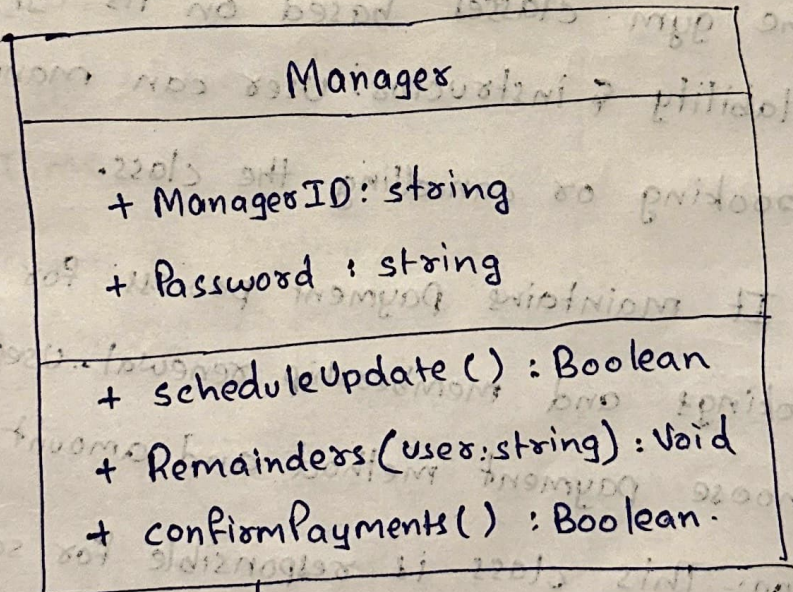 Manager
+ ManagerID: string
+ Password : string
+ scheduleUpdate () : Boolean
+ Remainders (user: string) : Void
+ confirmPayments () : Boolean.